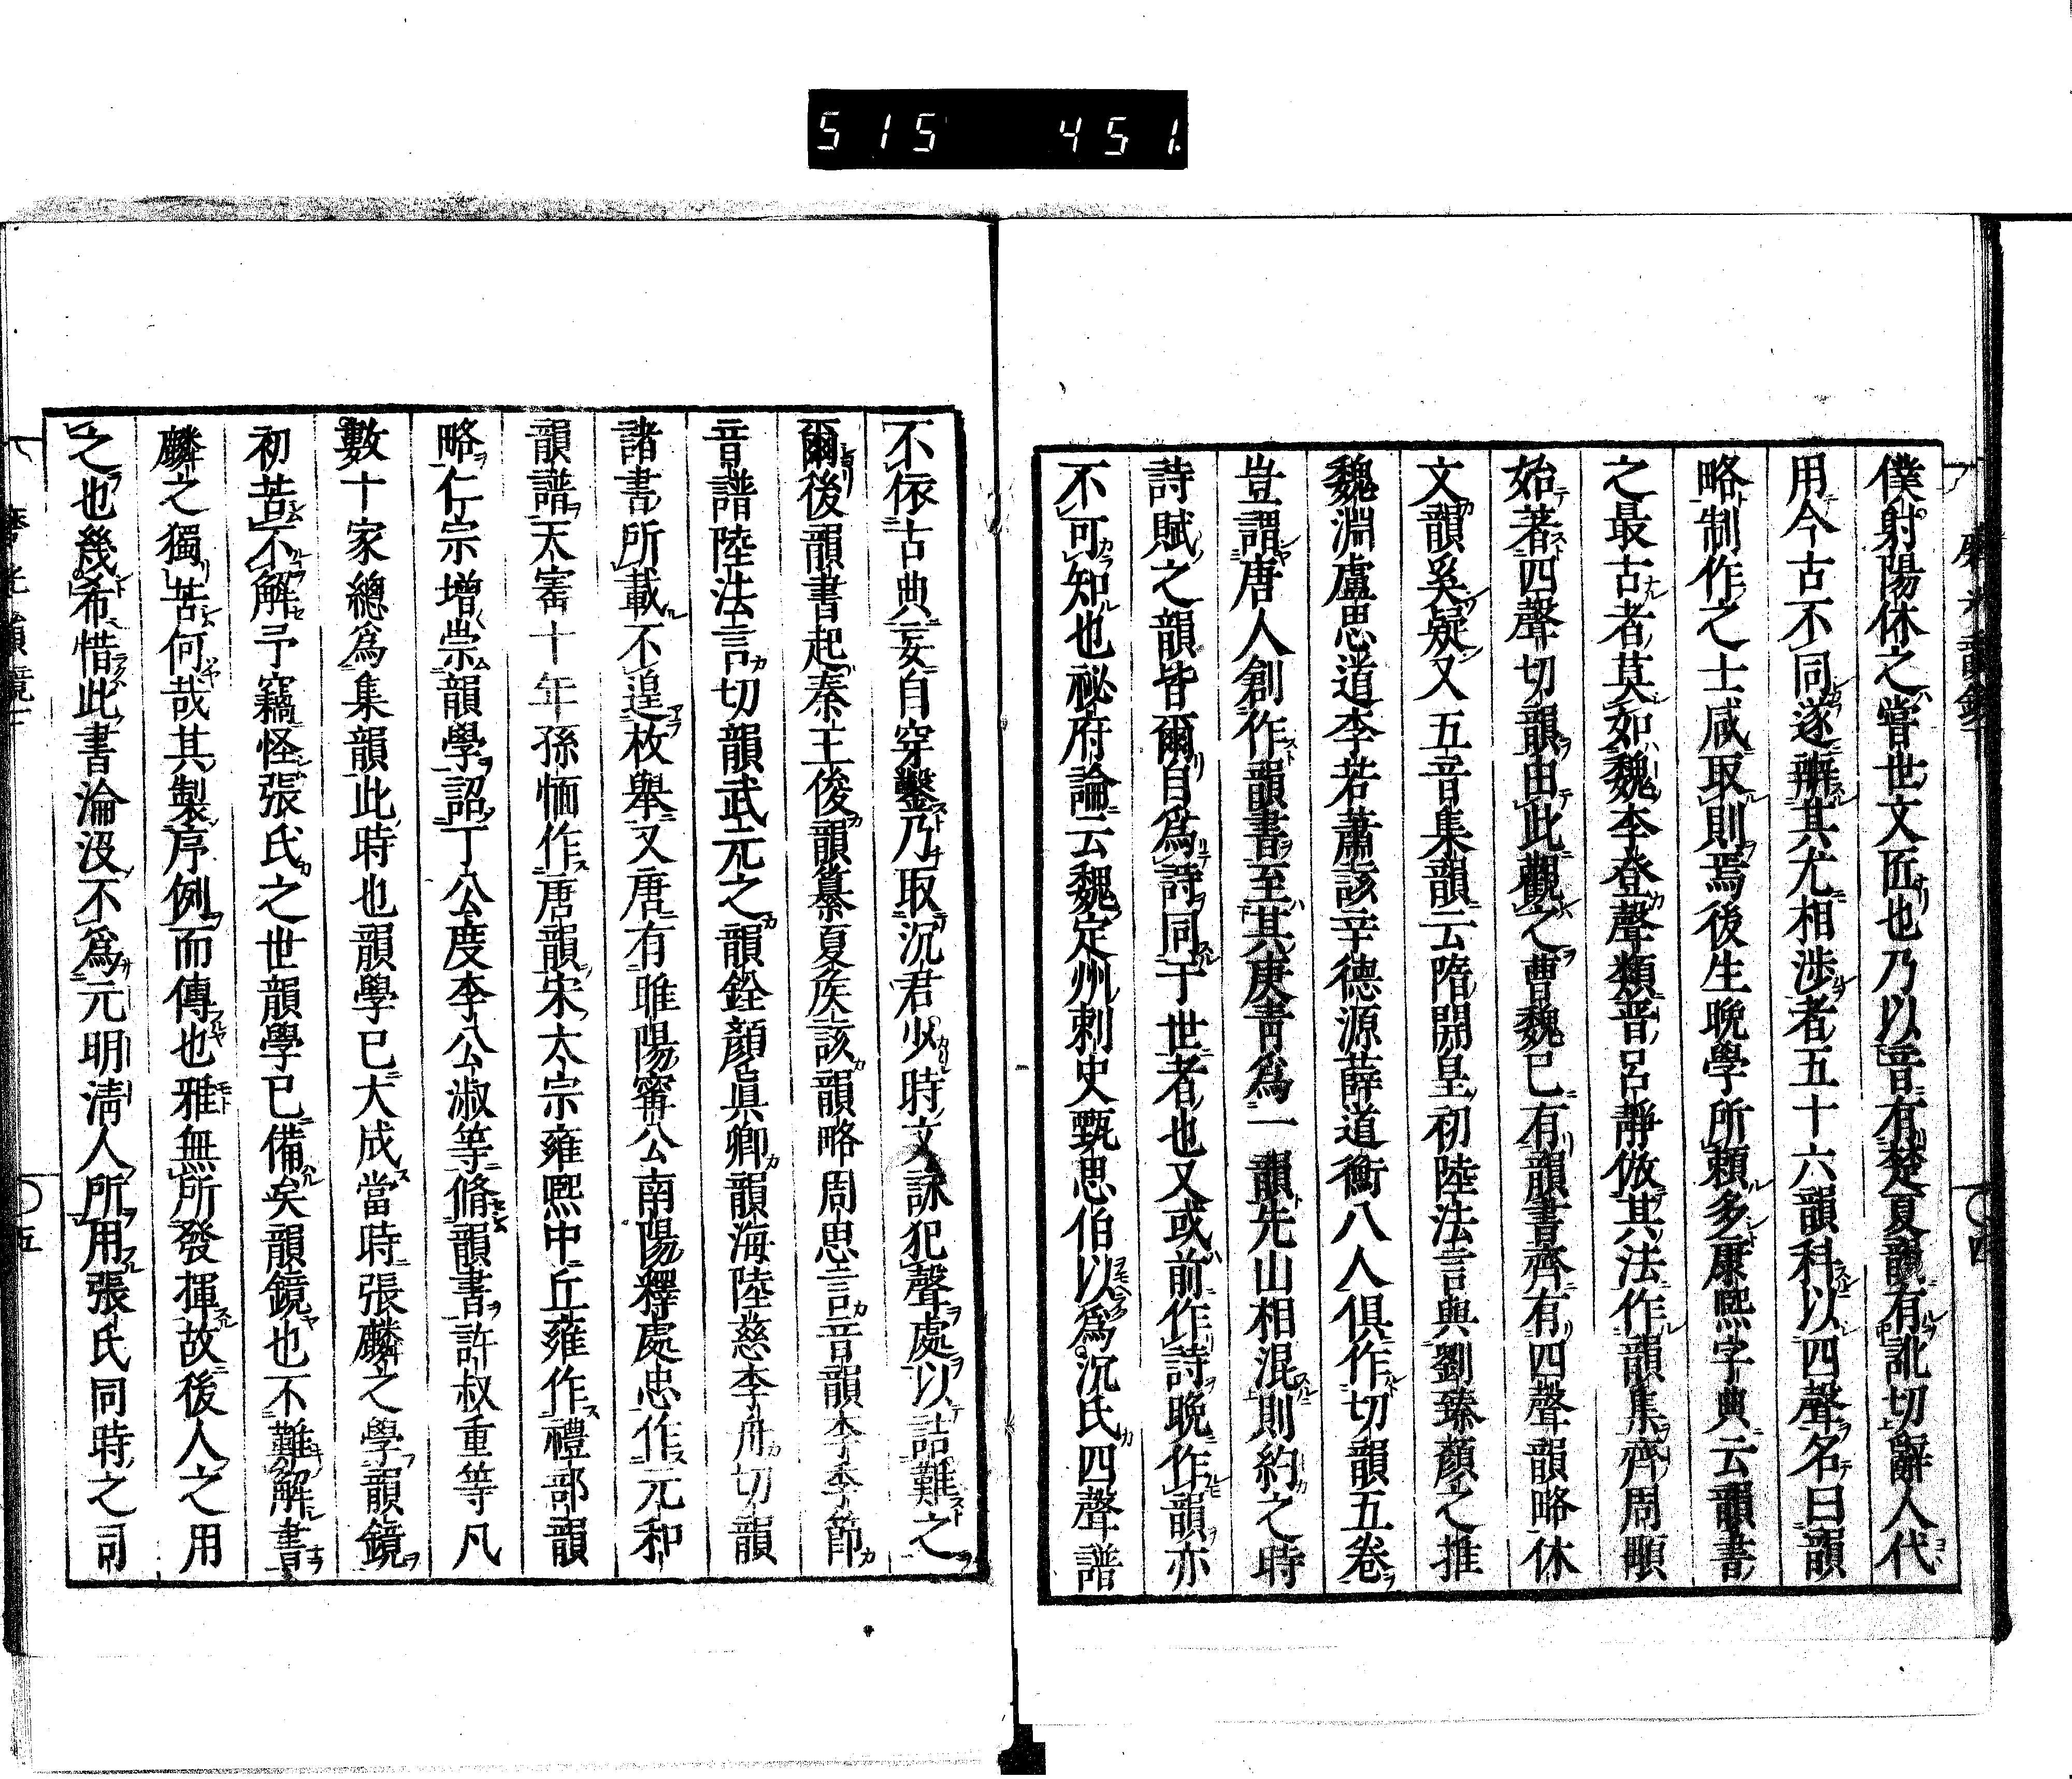 515 451.
僕射陽休之當世文匠也乃以音有楚夏韻有訛切辭人代
用今古不同遂辨其尤相渉者五十六韻科以四聲名曰韻
略制作之士咸取則焉後生晩學所頼多康熙字典云韻書
之最古者莫如魏李登聲類晉呂靜倣其法作韻集齊周顒
始著四聲切韻由此觀之曹魏已有韻書齊有四聲韻略休
文韻奚疑又五音集韻云隋開皇初陸法言與劉臻顏之推
魏淵盧思道李若蕭該辛德源薛道衡八人俱作切韻五卷
豈謂唐人創作韻書至其庚青爲一韻先山相混則約之時
詩賦之韻皆爾自爲詩同于世者也又或前作詩晩作韻亦
不可知也祕府論云魏定州刺史甄思伯以爲沉氏四聲譜
不依古典妄自穿鑿乃取沉君少時文詠犯聲處以詰難之
爾後韻書起秦王俊韻纂夏矦該韻略周思言音韻李季節
音譜陸法言切韻武元之韻銓顏眞卿韻海陸慈李舟切韻
諸書所載不遑枚舉又唐有睢陽寗公南陽釋處忠作元和
韻譜天寳十年孫愐作唐韻宋太宗雍熙中丘雍作禮部韻
略仁宗增崇韻學詔丁公度李公淑等脩韻書許叔重等凡
數十家總爲集韻此時也韻學已大成當時張麟之學韻鏡
初苦不解予竊怪張氏之世韻學已備矣韻鏡也不難解書
麟之獨苦何哉其製序例而傳也雅無所發揮故後人之用
之也幾希惜此書淪沒不爲元明淸人所用張氏同時之司